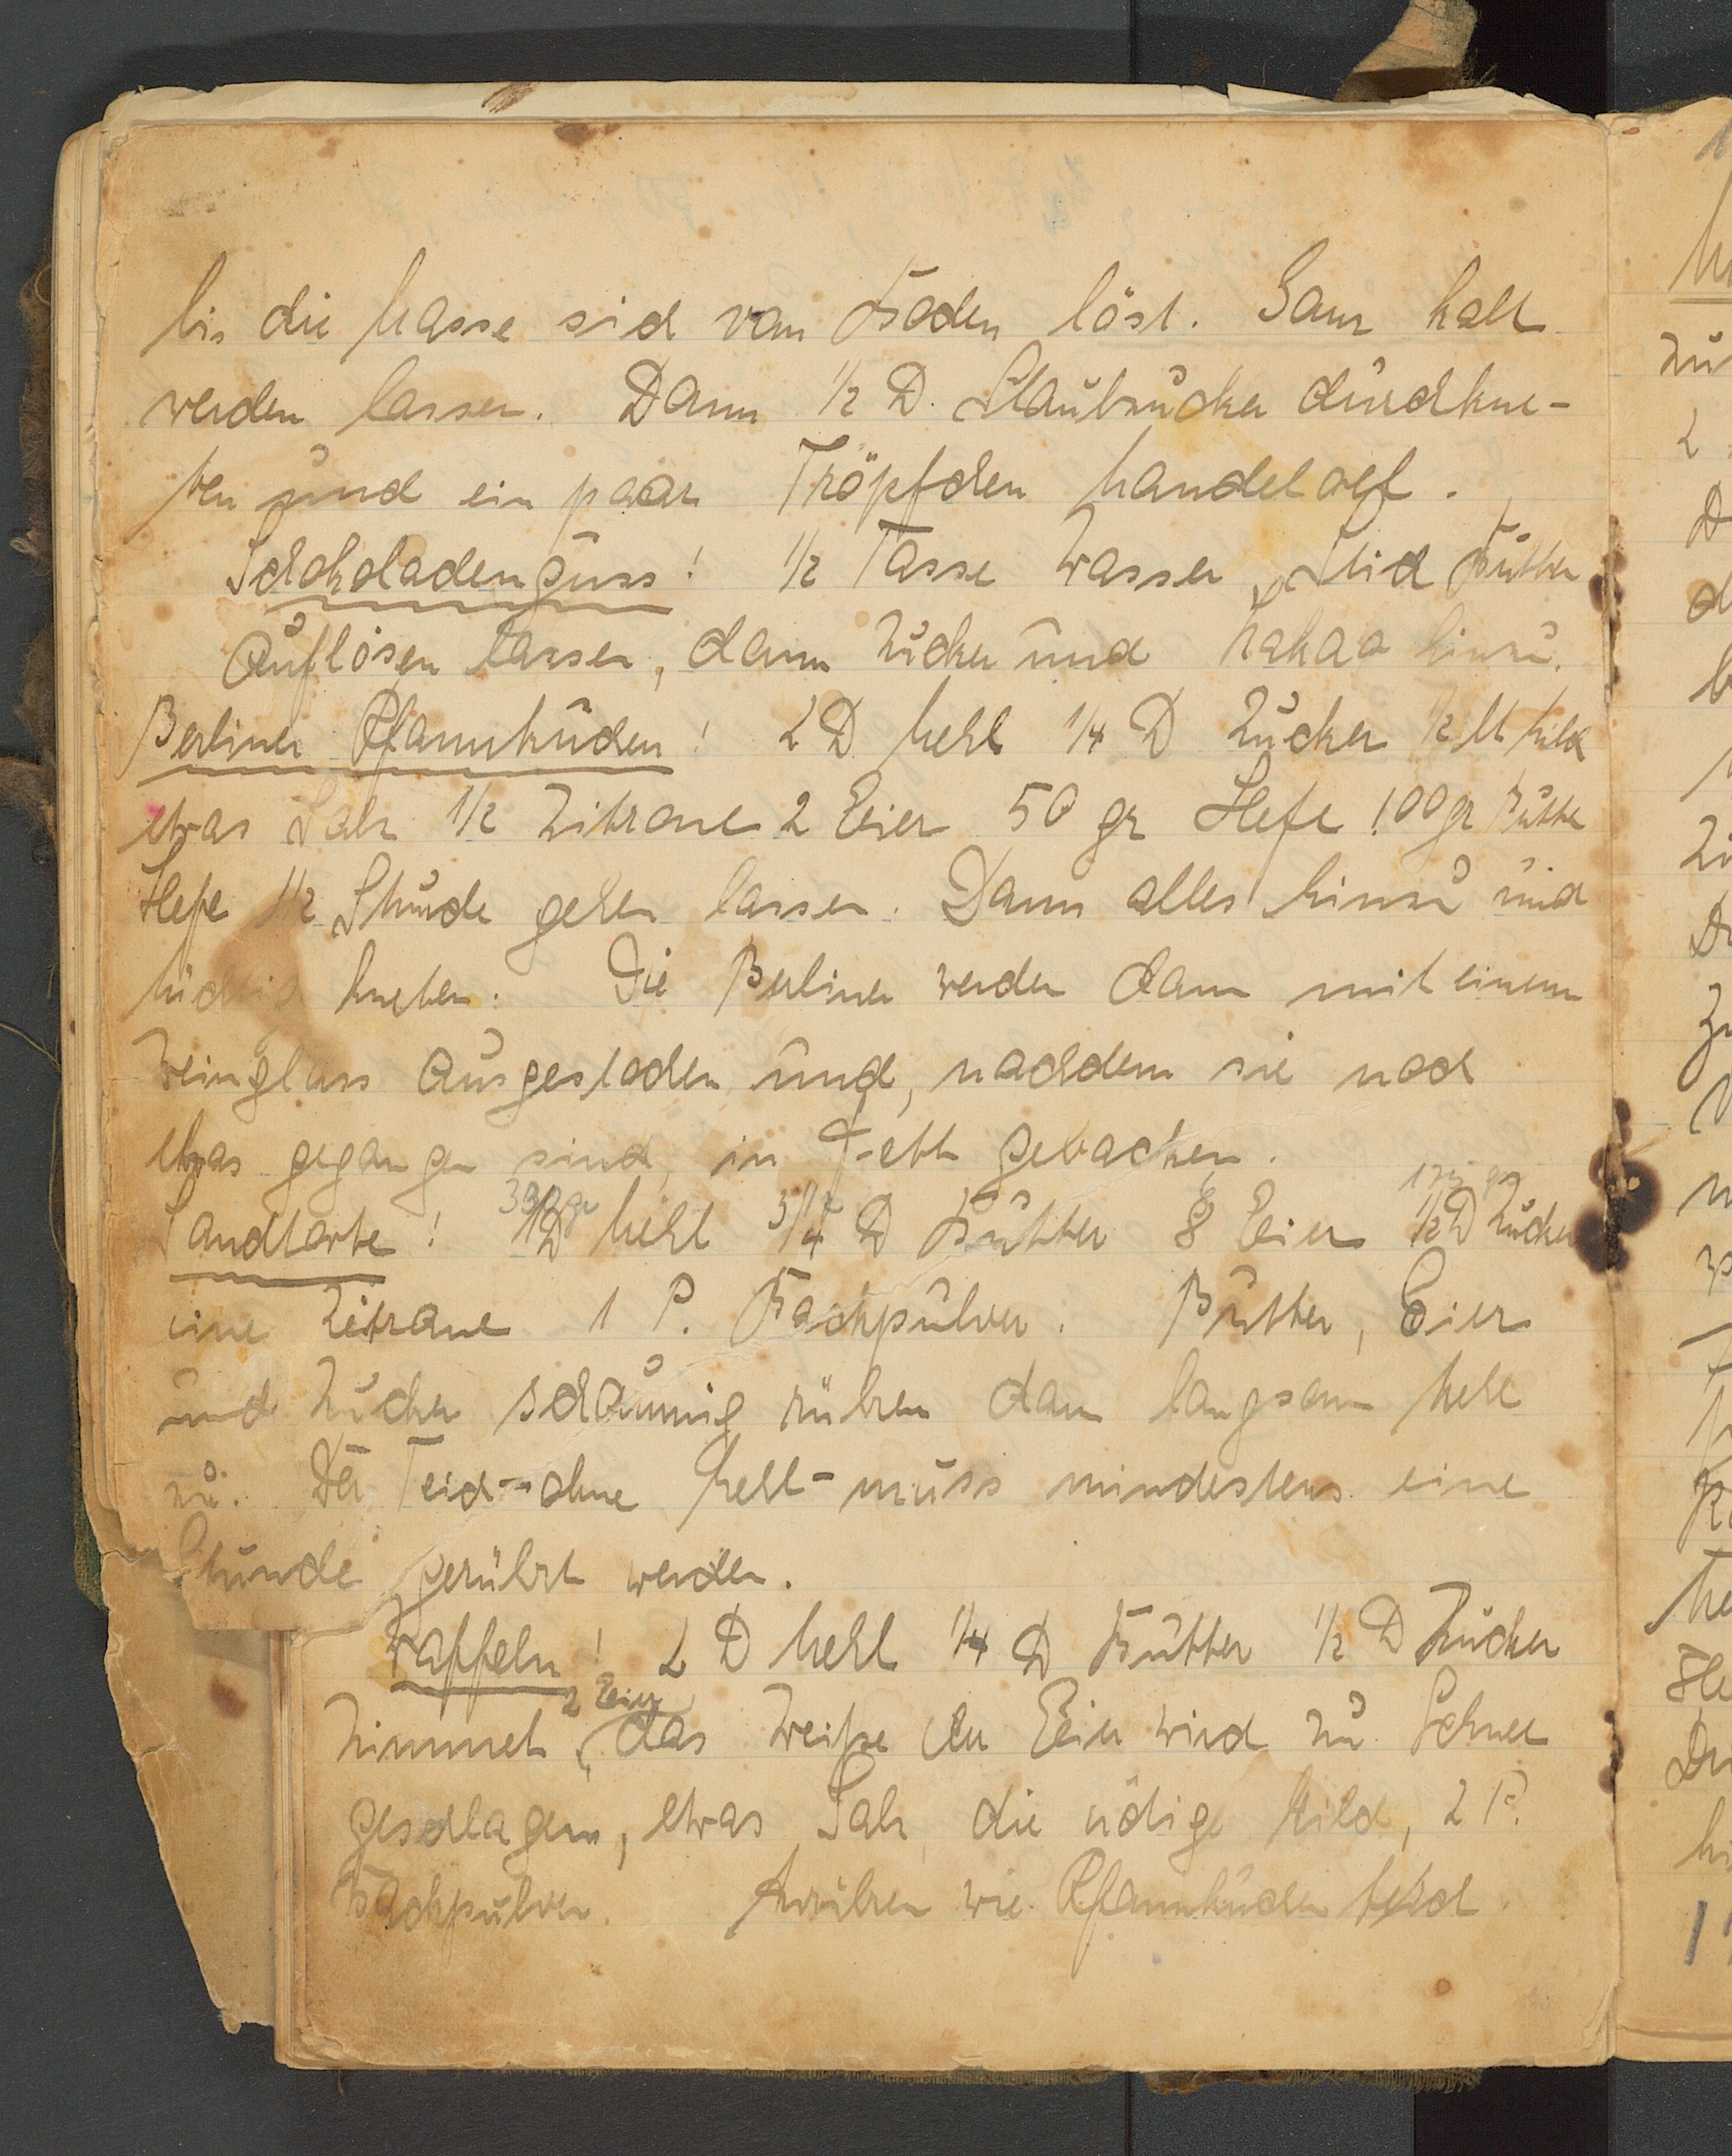 bis die Masse sich vom Boden löst. Ganz kalt
werden lassen. Dann 1/2 ₰. Staubzucker durchkne-
ten und ein paar Tröpfchen Mandeloel.
Schokoladenguss! 1/2 Tasse Wasser, Stich Butter
Auflösen lassen, dann Zucker und Kakao hinzu.
Berliner Pfannkuchen! 2 ₰ Mehl 1/4 ₰ Zucker 1/2 lt Milch
etwas Salz 1/2 Zitrone 2 Eier 50 gr Hefe 100 gr Butter
Hefe 1/2 Stunde gehen lassen. Dann alles hinzu und
tüchtig kneten. Die Berliner werden dann mit einem
Weinglass ausgestochen und, nachdem sie noch
etwas gegangen sind, in Fett gebacken.
Sandtorte! 1 ₰ Mehl 3/4 ₰ Butter 8 Eier 1/2 ₰ Zucker
eine Zitrone 1 P. Backpulver. Butter, Eier
und Zucker schaumig rühren dann langsam Mehl
zu. Der Teich - ohne Mehl - muss mindestens eine
Stunde gerührt werden.
Waffeln! 2 ₰ Mehl 1/4 ₰ Butter 1/2 ₰ Zucker
2 Eier
Zimmet, das Weiße der Eier wird zu Schnee
geschlagen, etwas Salz, die nötige Milch, 2 P.
Backpulver. Anrühren wie Pfannkuchen